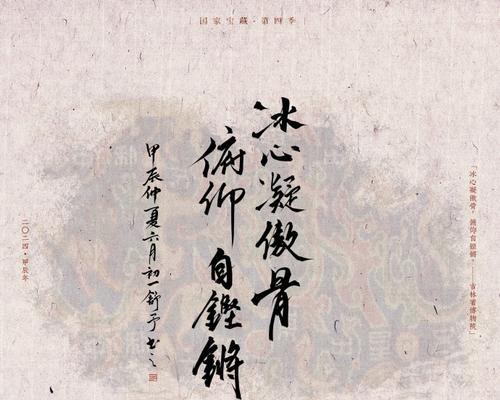 国家宝藏·第四季
冰心凝傲骨
俯仰自铿锵
甲辰仲夏六月初一舒予书之
「冰心凝傲骨 俯仰自铿锵」——吉林省博物院
二〇二四·甲辰年